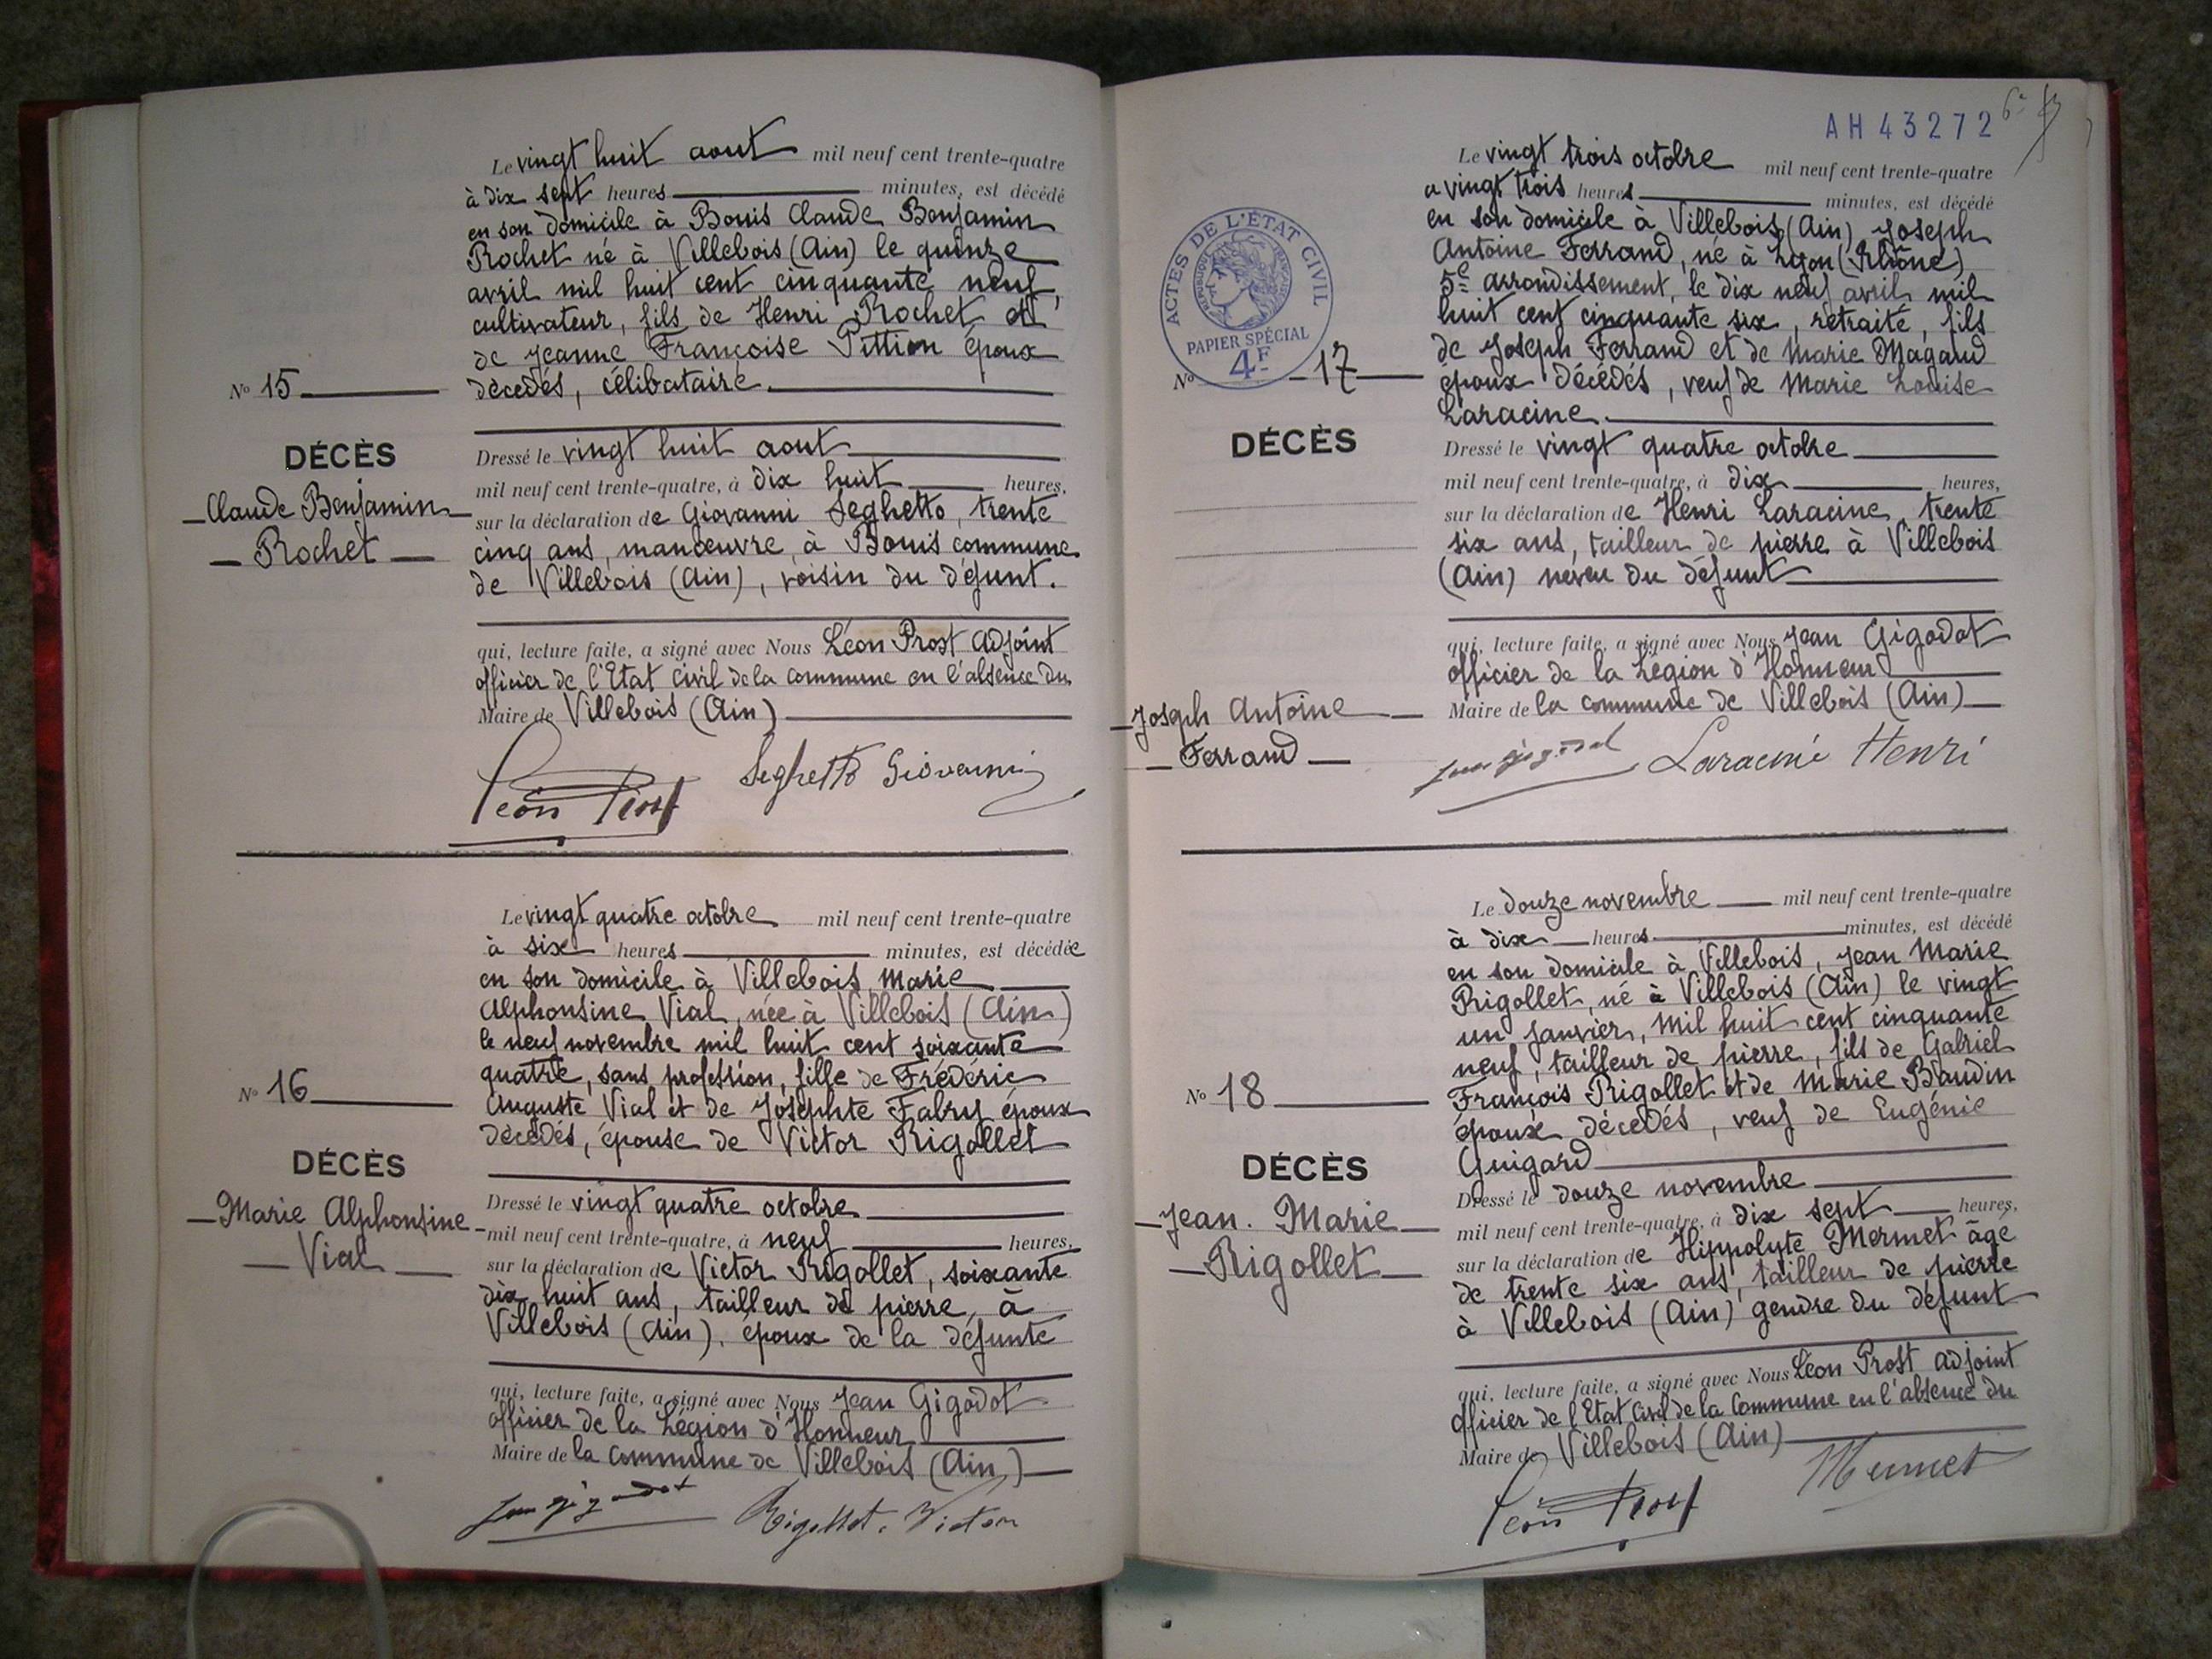 Le vingt huit aout mil neuf cent trente-quatre
à dix sept heures minutes, est décédé
en son domicile à Bouis Claude Benjamin
Rochet né à Villebois (Ain) le quinze
avril mil huit cent cinquante neuf,
cultivateur, fils de Henri Rochet et
de Jeanne Françoise Pittion époux
décedés, célibataire.
No 15
DÉCÈS
Claude Benjamin
Rochet
Dressé le vingt huit aout
mil neuf cent trente-quatre, à dix huit heures,
sur la déclaration de Giovanni Seghetto, trente
cinq ans, manœuvre, à Bouis commune
de Villebois (Ain), voisin du défunt.
qui, lecture faite, a signé avec Nous Léon Prost adjoint
officier de l'Etat Civil de la Commune en l'absence du
Maire de Villebois (Ain)
Léon Prost Seghetto Giovanni
Le vingt quatre octobre mil neuf cent trente-quatre
à six heures minutes, est décédée
en son domicile à Villebois, Marie
Alphonsine Vial, née à Villebois (Ain)
le neuf novembre mil huit cent soixante
quatre, sans profession, fille de Fréderic
Auguste Vial et de Joséphte Fabry époux
décedés, épouse de Victor Rigollet
No 16
DÉCÈS
Marie Alphonsine
Vial
Dressé le vingt quatre octobre
mil neuf cent trente-quatre, à neuf heures,
sur la déclaration de Victor Rigollet, soixante
dix huit ans, tailleur de pierre, à
Villebois (Ain), époux de la défunte
qui, lecture faite, a signé avec Nous Jean Gigodot
officier de la Légion d'Honneur
Maire de la commune de Villebois (Ain)
Jean Gigodot Rigollet. Victor
AH 43272
Le vingt trois octobre mil neuf cent trente-quatre
a vingt trois heures minutes, est décédé
en son domicile à Villebois (Ain) Joseph
Antoine Ferrand, né à Lyon (Rhône)
5e arrondissement, le dix neuf avril mil
huit cent cinquante six, retraité, fils
de Joseph Ferrand et de Marie Magaud
époux décédés, veuf de Marie Louise
Laracine.
ACTES DE L'ÉTAT CIVIL
RÉPUBLIQUE FRANÇAISE
PAPIER SPÉCIAL
4F
No 17
DÉCÈS
Joseph Antoine
Ferrand
Dressé le vingt quatre octobre
mil neuf cent trente-quatre, à dix heures,
sur la déclaration de Henri Laracine, trente
six ans, tailleur de pierre à Villebois
(Ain) neveu du défunt
qui, lecture faite, a signé avec Nous Jean Gigodot
officier de la Légion d'Honneur
Maire de la commune de Villebois (Ain)
Jean Gigodot Laracine Henri
Le douze novembre mil neuf cent trente-quatre
à dix heures minutes, est décédé
en son domicile à Villebois, Jean Marie
Rigollet, né à Villebois (Ain) le vingt
un janvier, mil huit cent cinquante
neuf, tailleur de pierre, fils de Gabriel
François Rigollet et de Marie Baudin
époux décedés, veuf de Eugénie
Guigard
No 18
DÉCÈS
Jean. Marie
Rigollet
Dressé le douze novembre
mil neuf cent trente-quatre, à dix sept heures,
sur la déclaration de Hippolyte Mermet âgé
de trente six ans, tailleur de pierre
à Villebois (Ain) gendre du défunt
qui, lecture faite, a signé avec Nous Léon Prost adjoint
officier de l'Etat Civil de la Commune en l'absence du
Maire de Villebois (Ain)
Léon Prost Mermet